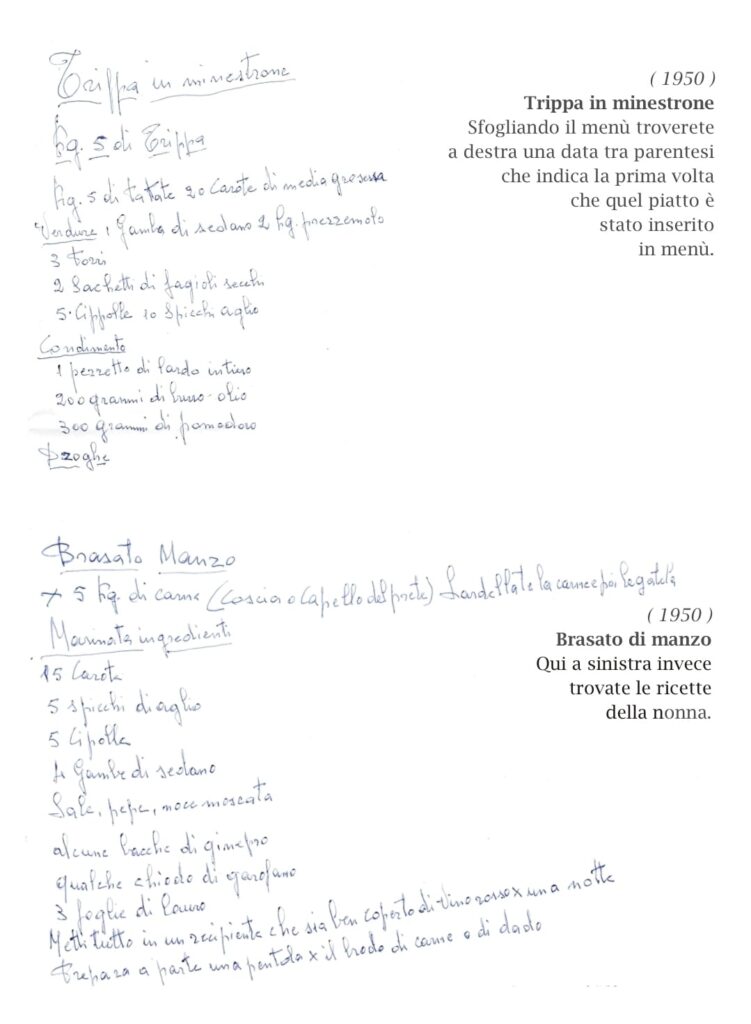 Trippa in minestrone
Kg. 5 di Trippa
Kg. 5 di patate 20 Carote di media grossezza
Verdure 1 Gamba di sedano 2 hg. prezzemolo
3 Porri
2 Sachetti di fagioli secchi
5 Cippolle 10 Spicchi aglio
Condimento
1 pezzetto di lardo intiero
200 grammi di burro-olio
300 grammi di pomodoro
Droghe
( 1950 )
Trippa in minestrone
Sfogliando il menù troverete
a destra una data tra parentesi
che indica la prima volta
che quel piatto è
stato inserito
in menù.
Brasato Manzo
x 5 Kg. di carne (Coscia o Capello del prete) Lardellate la carne e poi legatela
Marinata ingredienti
15 Carota
5 spicchi di aglio
5 Cipolla
4 Gambe di sedano
Sale, pepe, noce moscata
alcune bacche di ginepro
qualche chiodo di garofano
3 foglie di Lauro
Metti tutto in un recipiente che sia ben coperto di vino rosso x una notte
Prepara a parte una pentola x il brodo di carne o di dado
( 1950 )
Brasato di manzo
Qui a sinistra invece
trovate le ricette
della nonna.